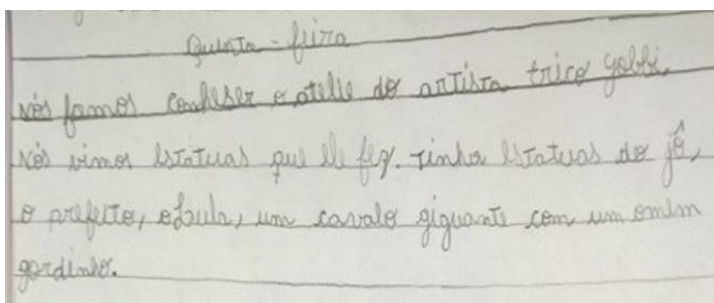 Quinta-feira
Nós famos conheser o atelie do artista trico gobbi.
Nós vimos estatuas que ele fez. Tinha estatuas do jô,
o prefeito, o Lula, um cavalo giguante com um omem
gordinho.